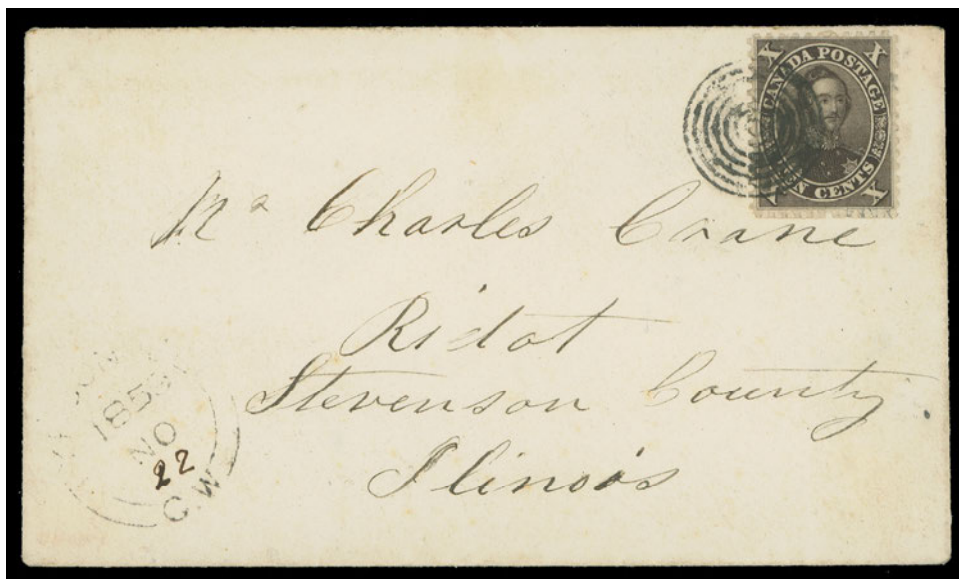 X X
CANADA POSTAGE
TEN CENTS
X
Mr Charles Crane
Ridot
Stevenson County
Ilinois
1859
NO
22
C.W